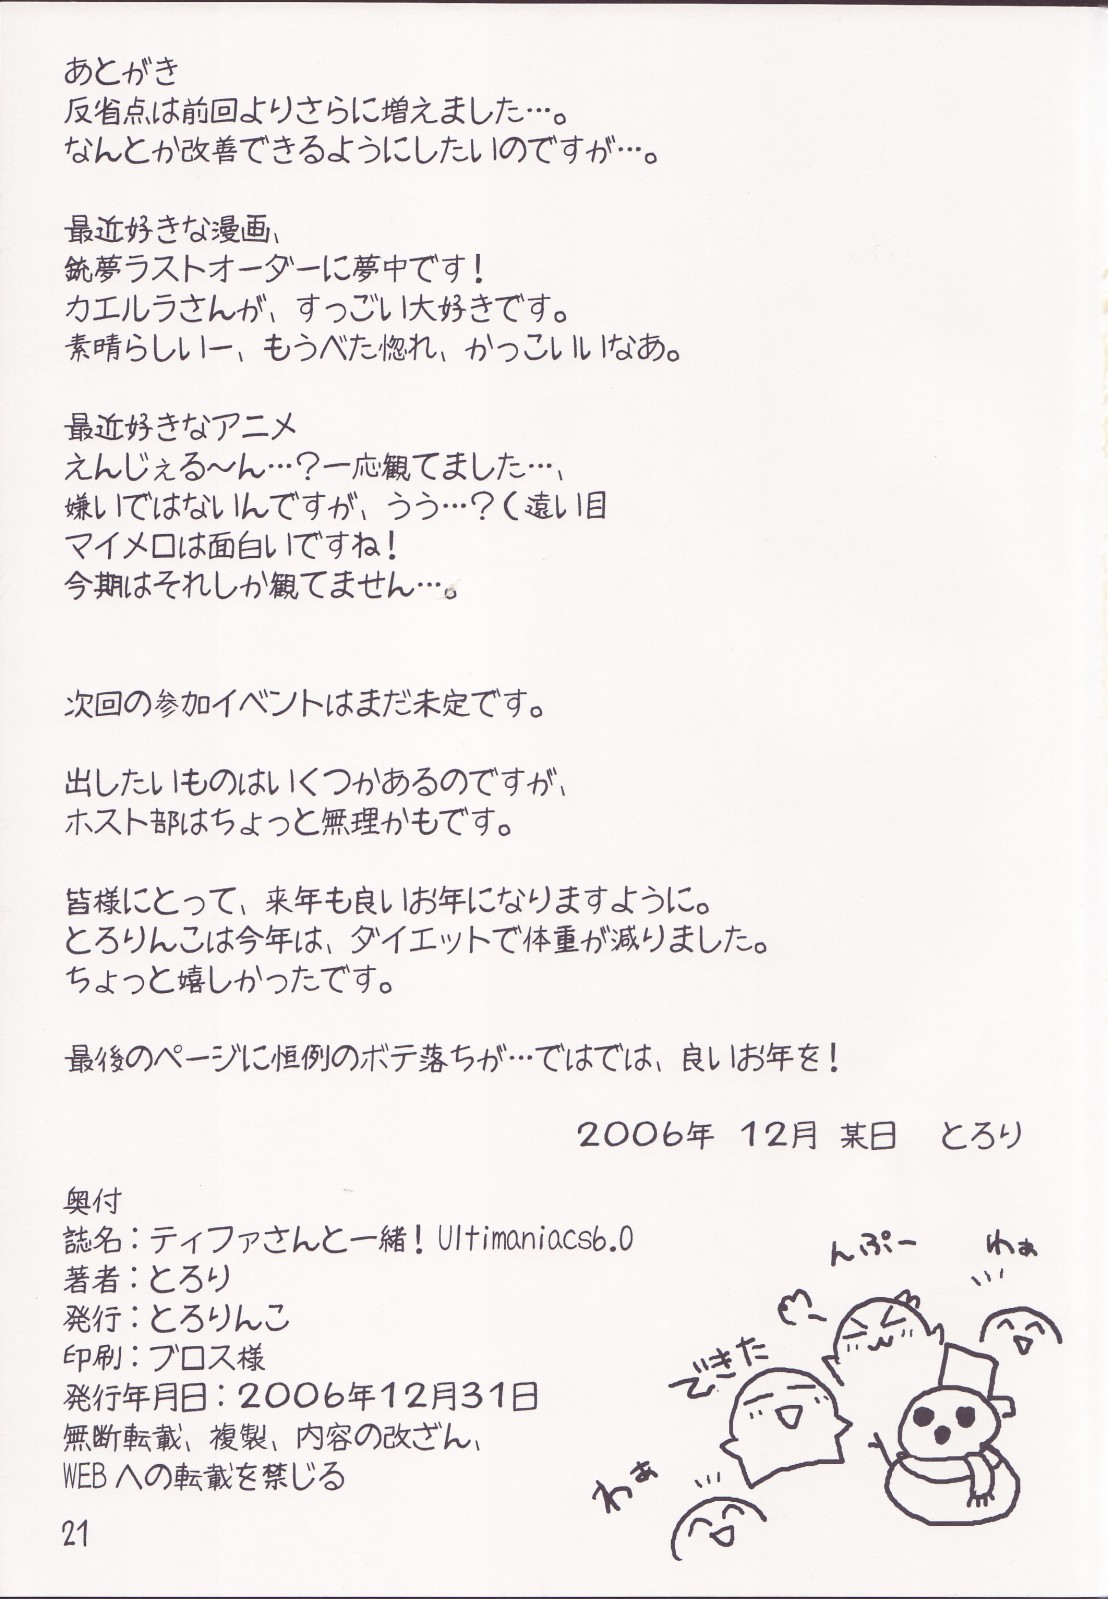 あとがき
反省点は前回よりさらに増えました…。
なんとか改善できるようにしたいのですが…。
最近好きな漫画、
銃夢ラストオーダーに夢中です！
カエルラさんが、すっごい大好きです。
素晴らしいー、もうべた惚れ、かっこいいなあ。
最近好きなアニメ
えんじぇる～ん…？一応観てました…、
嫌いではないんですが、うう…？（遠い目
マイメロは面白いですね！
今期はそれしか観てません…。
次回の参加イベントはまだ未定です。
出したいものはいくつかあるのですが、
ホスト部はちょっと無理かもです。
皆様にとって、来年も良いお年になりますように。
とろりんこは今年は、ダイエットで体重が減りました。
ちょっと嬉しかったです。
最後のページに恒例のボテ落ちが…ではでは、良いお年を！
2006年 12月 某日 とろり
奥付
誌名：ティファさんと一緒！Ultimaniacs6.0
著者：とろり
発行：とろりんこ
印刷：ブロス様
発行年月日：2006年12月31日
無断転載、複製、内容の改ざん、
WEBへの転載を禁じる
んぷー
わぁ
できた
わぁ
21